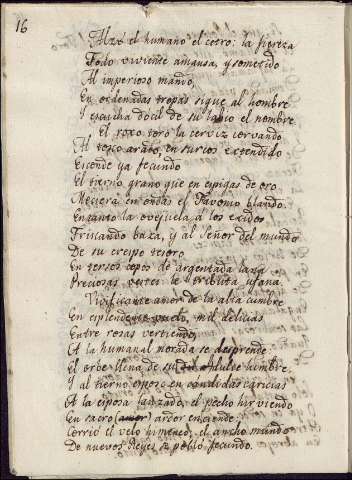 16
Alzó el humano el cetro: la fiereza
Todo viviente amansa, y sometido
Al imperioso mando,
En ordenadas tropas sigue al hombre
Y escucha docil de su labio el nombre.
El roxo toro la cerviz corvando
Al tosco arado, en surcos extendido
Esconde ya fecundo
El tierno grano que en espigas de oro
Meciera en ondas el Favonio blando.
En tanto la ovejuela a los exidos
Triscando baxa, y al Señor del mundo
De su crespo tesoro
En tersos copos de argentada lana
Preciosas vestes le tributa ufana.
Vivificante amor de la alta cumbre
En esplendente vuelo, mil delicias
Entre rosas vertiendo,
A la humanal morada se desprende:
El orbe llena de su dulce lumbre,
Y al tierno esposo en candidas caricias
A la esposa lanzado, el pecho hirviendo
En sacro (amor) ardor enciende:
Corrió el velo himeneo, el ancho mando
De nuevos Reyes se pobló fecundo.